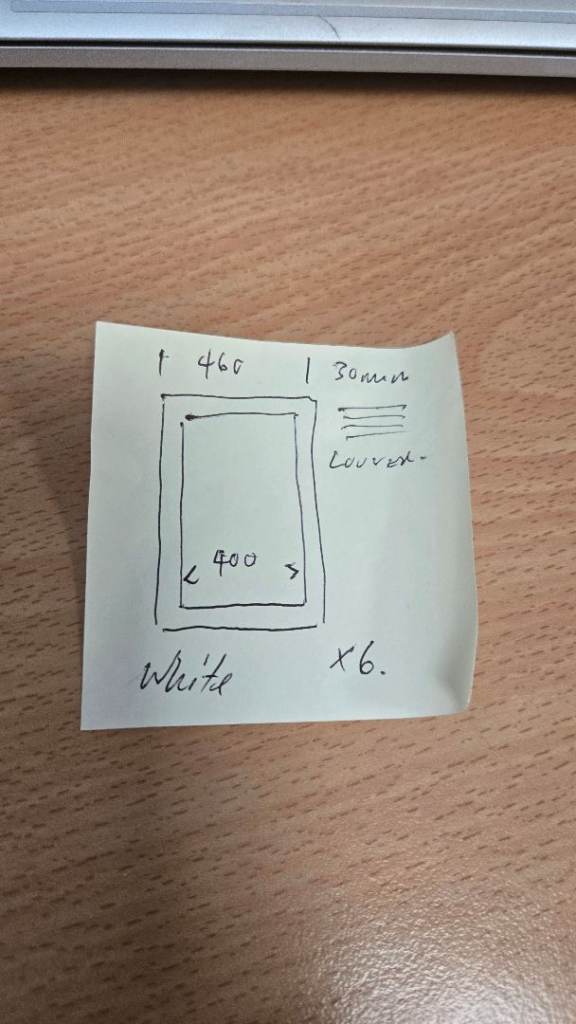 460 30mm
Louver.
400
White x6.